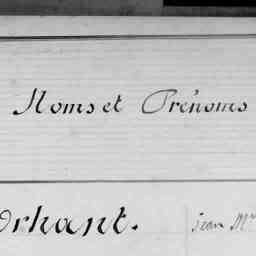 Noms et Prénoms
Orhant. jean Mie